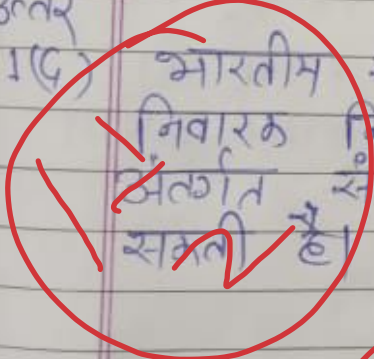 उत्तर
1(८) भारतीय
निवारक
अंतर्गत
सकती है।